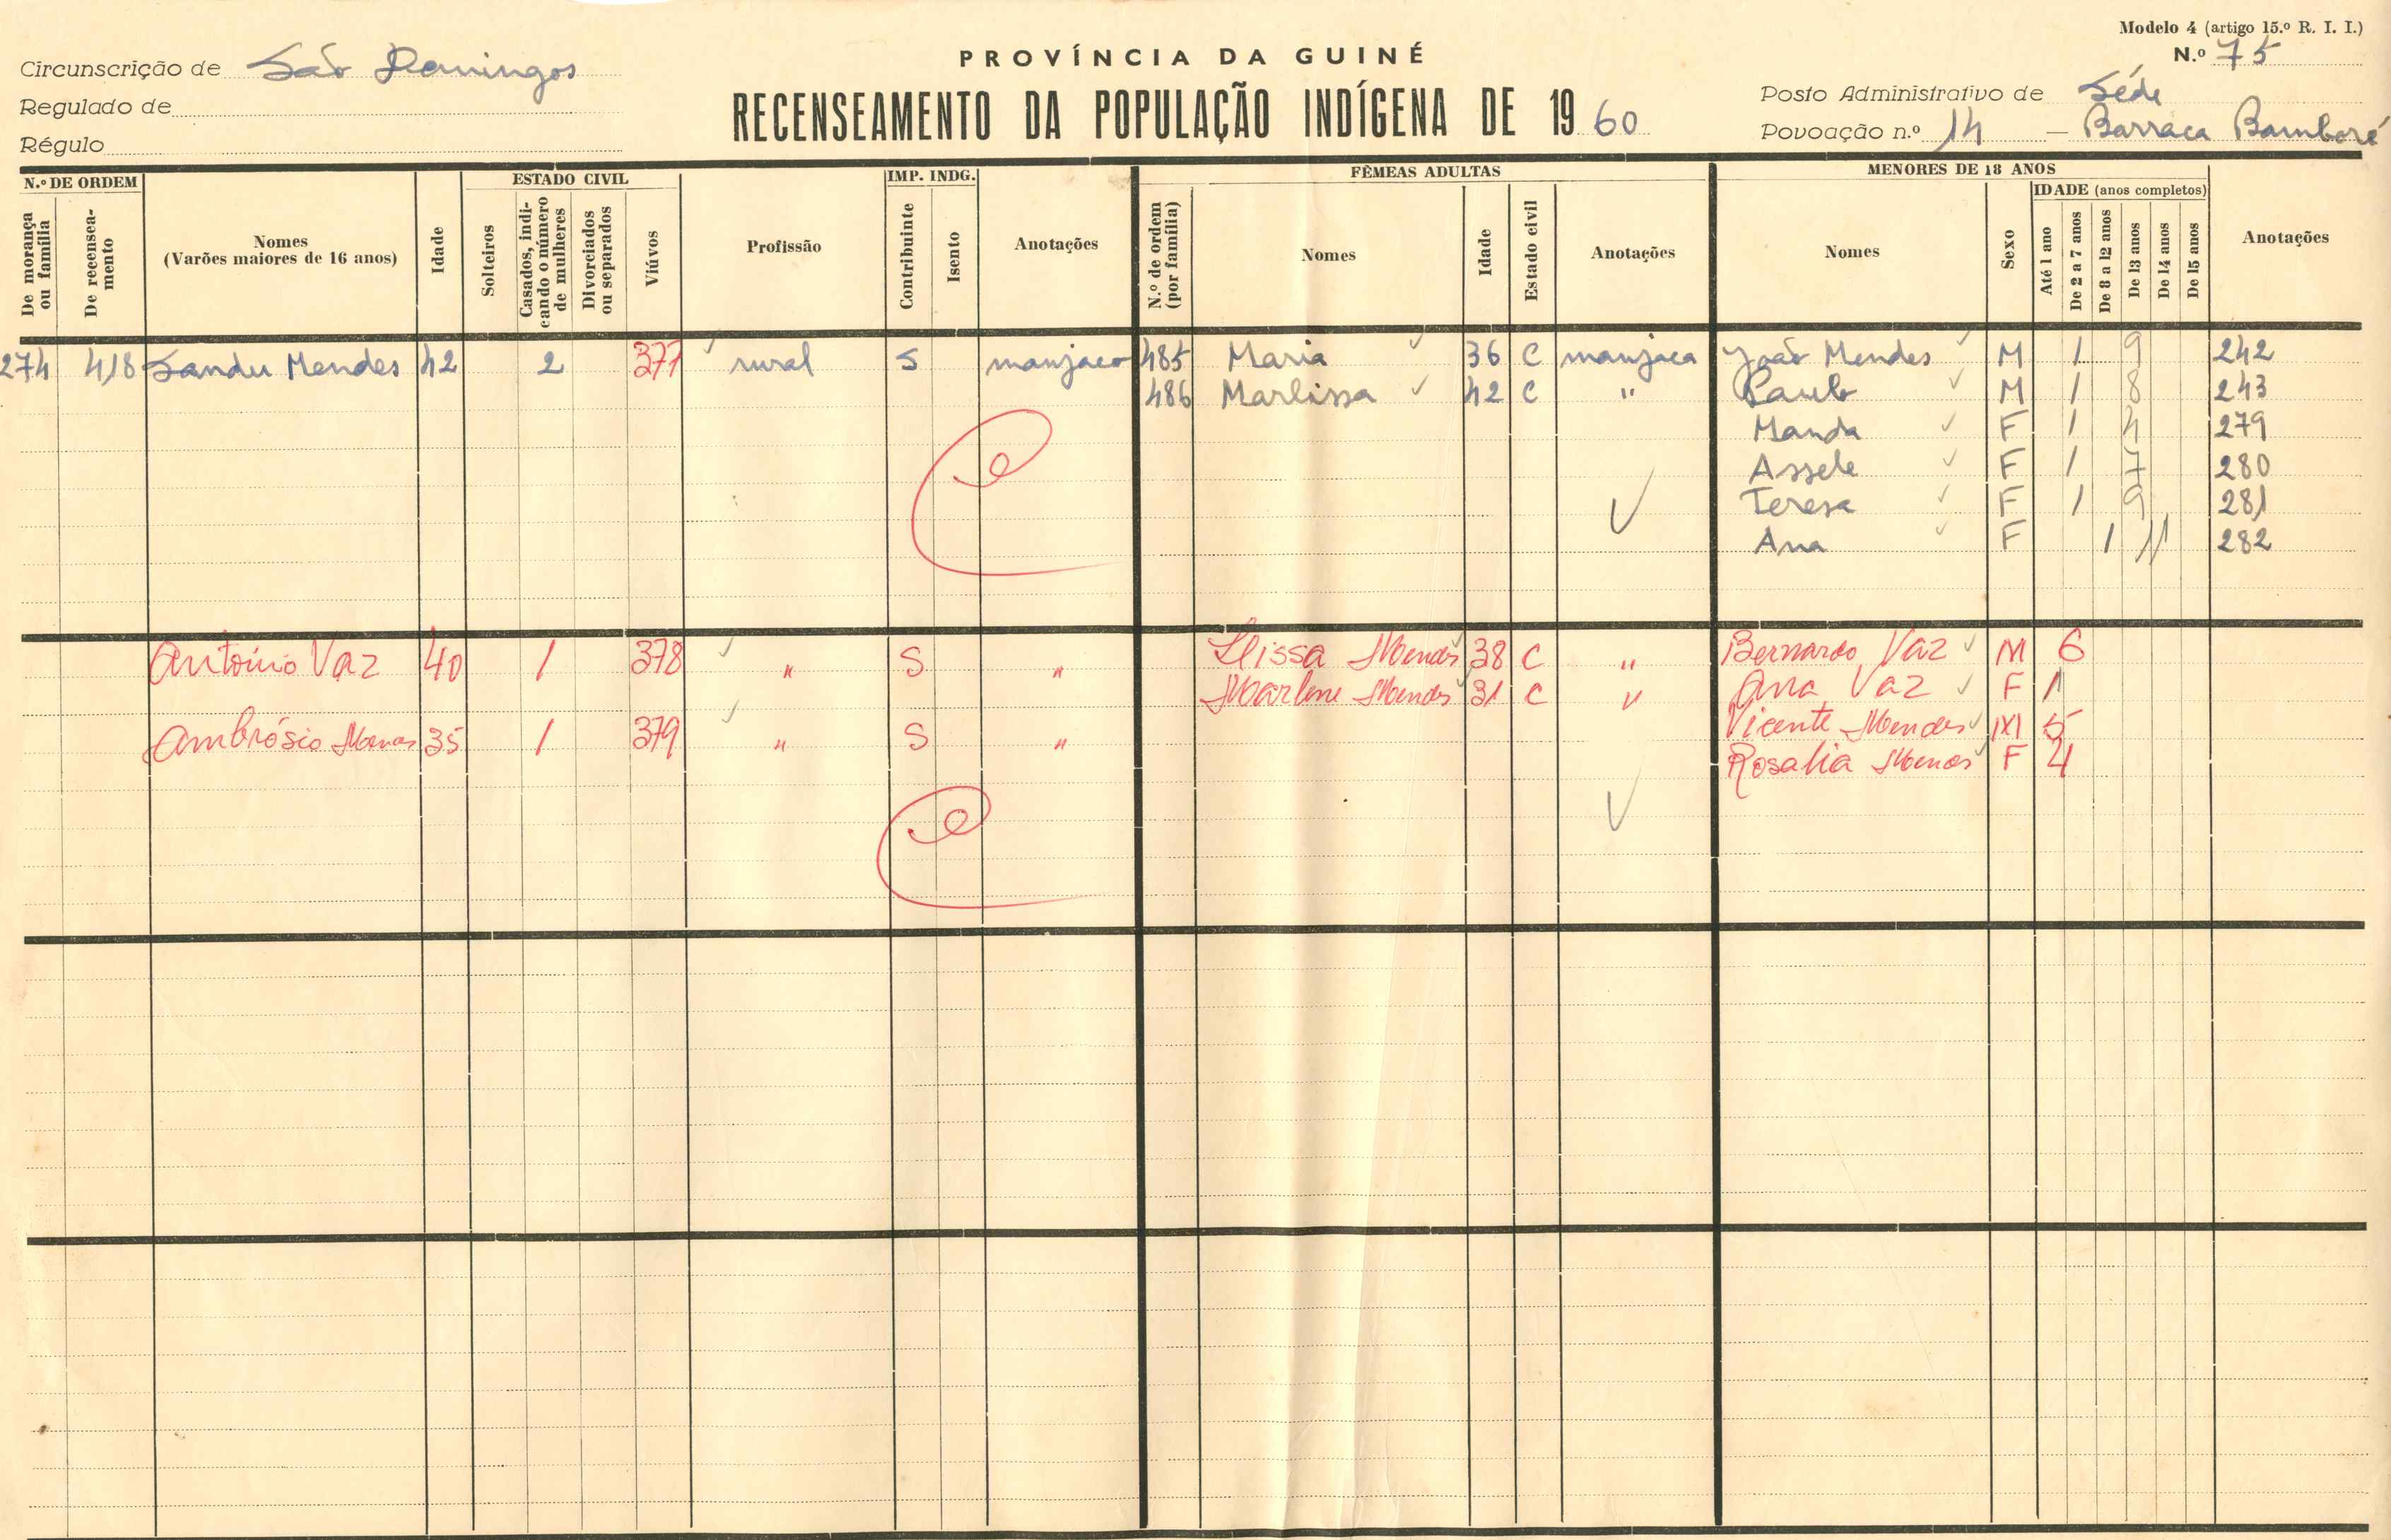 Modelo 4 (artigo 15.º R. I. I.)
Circunscrição de São Domingos
PROVÍNCIA DA GUINÉ
N.º 75
Regulado de
RECENSEAMENTO DA POPULAÇÃO INDÍGENA DE 1960
Posto Administrativo de Séde
Régulo
Povoação n.º 14 — Barraca Bamboré
N.º DE ORDEM
ESTADO CIVIL
IMP. INDG.
FÊMEAS ADULTAS
MENORES DE 18 ANOS
De morança ou família
De recenseamento
Nomes
(Varões maiores de 16 anos)
Idade
Solteiros
Casados, indicando o número de mulheres
Divorciados ou separados
Viúvos
Profissão
Contribuinte
Isento
Anotações
N.º de ordem (por família)
Nomes
Idade
Estado civil
Anotações
Nomes
Sexo
IDADE (anos completos)
Até 1 ano
De 2 a 7 anos
De 8 a 12 anos
De 13 anos
De 14 anos
De 15 anos
Anotações
274 418 Sandu Mendes 42 2 377 rural S manjaco 485 Maria 36 C manjaca João Mendes M 1 9 242
486 Marlissa 42 C " Paulo M 1 8 243
Manda F 1 4 279
Assele F 1 7 280
Teresa F 1 9 281
Ana F 1 11 282
António Vaz 40 1 378 " S " Llissa Mendes 38 C " Bernardo Vaz M 6
Marlene Mendes 31 C " Ana Vaz F 1
Ambrósio Mendes 35 1 379 " S " Vicente Mendes M 5
Rosalia Mendes F 4